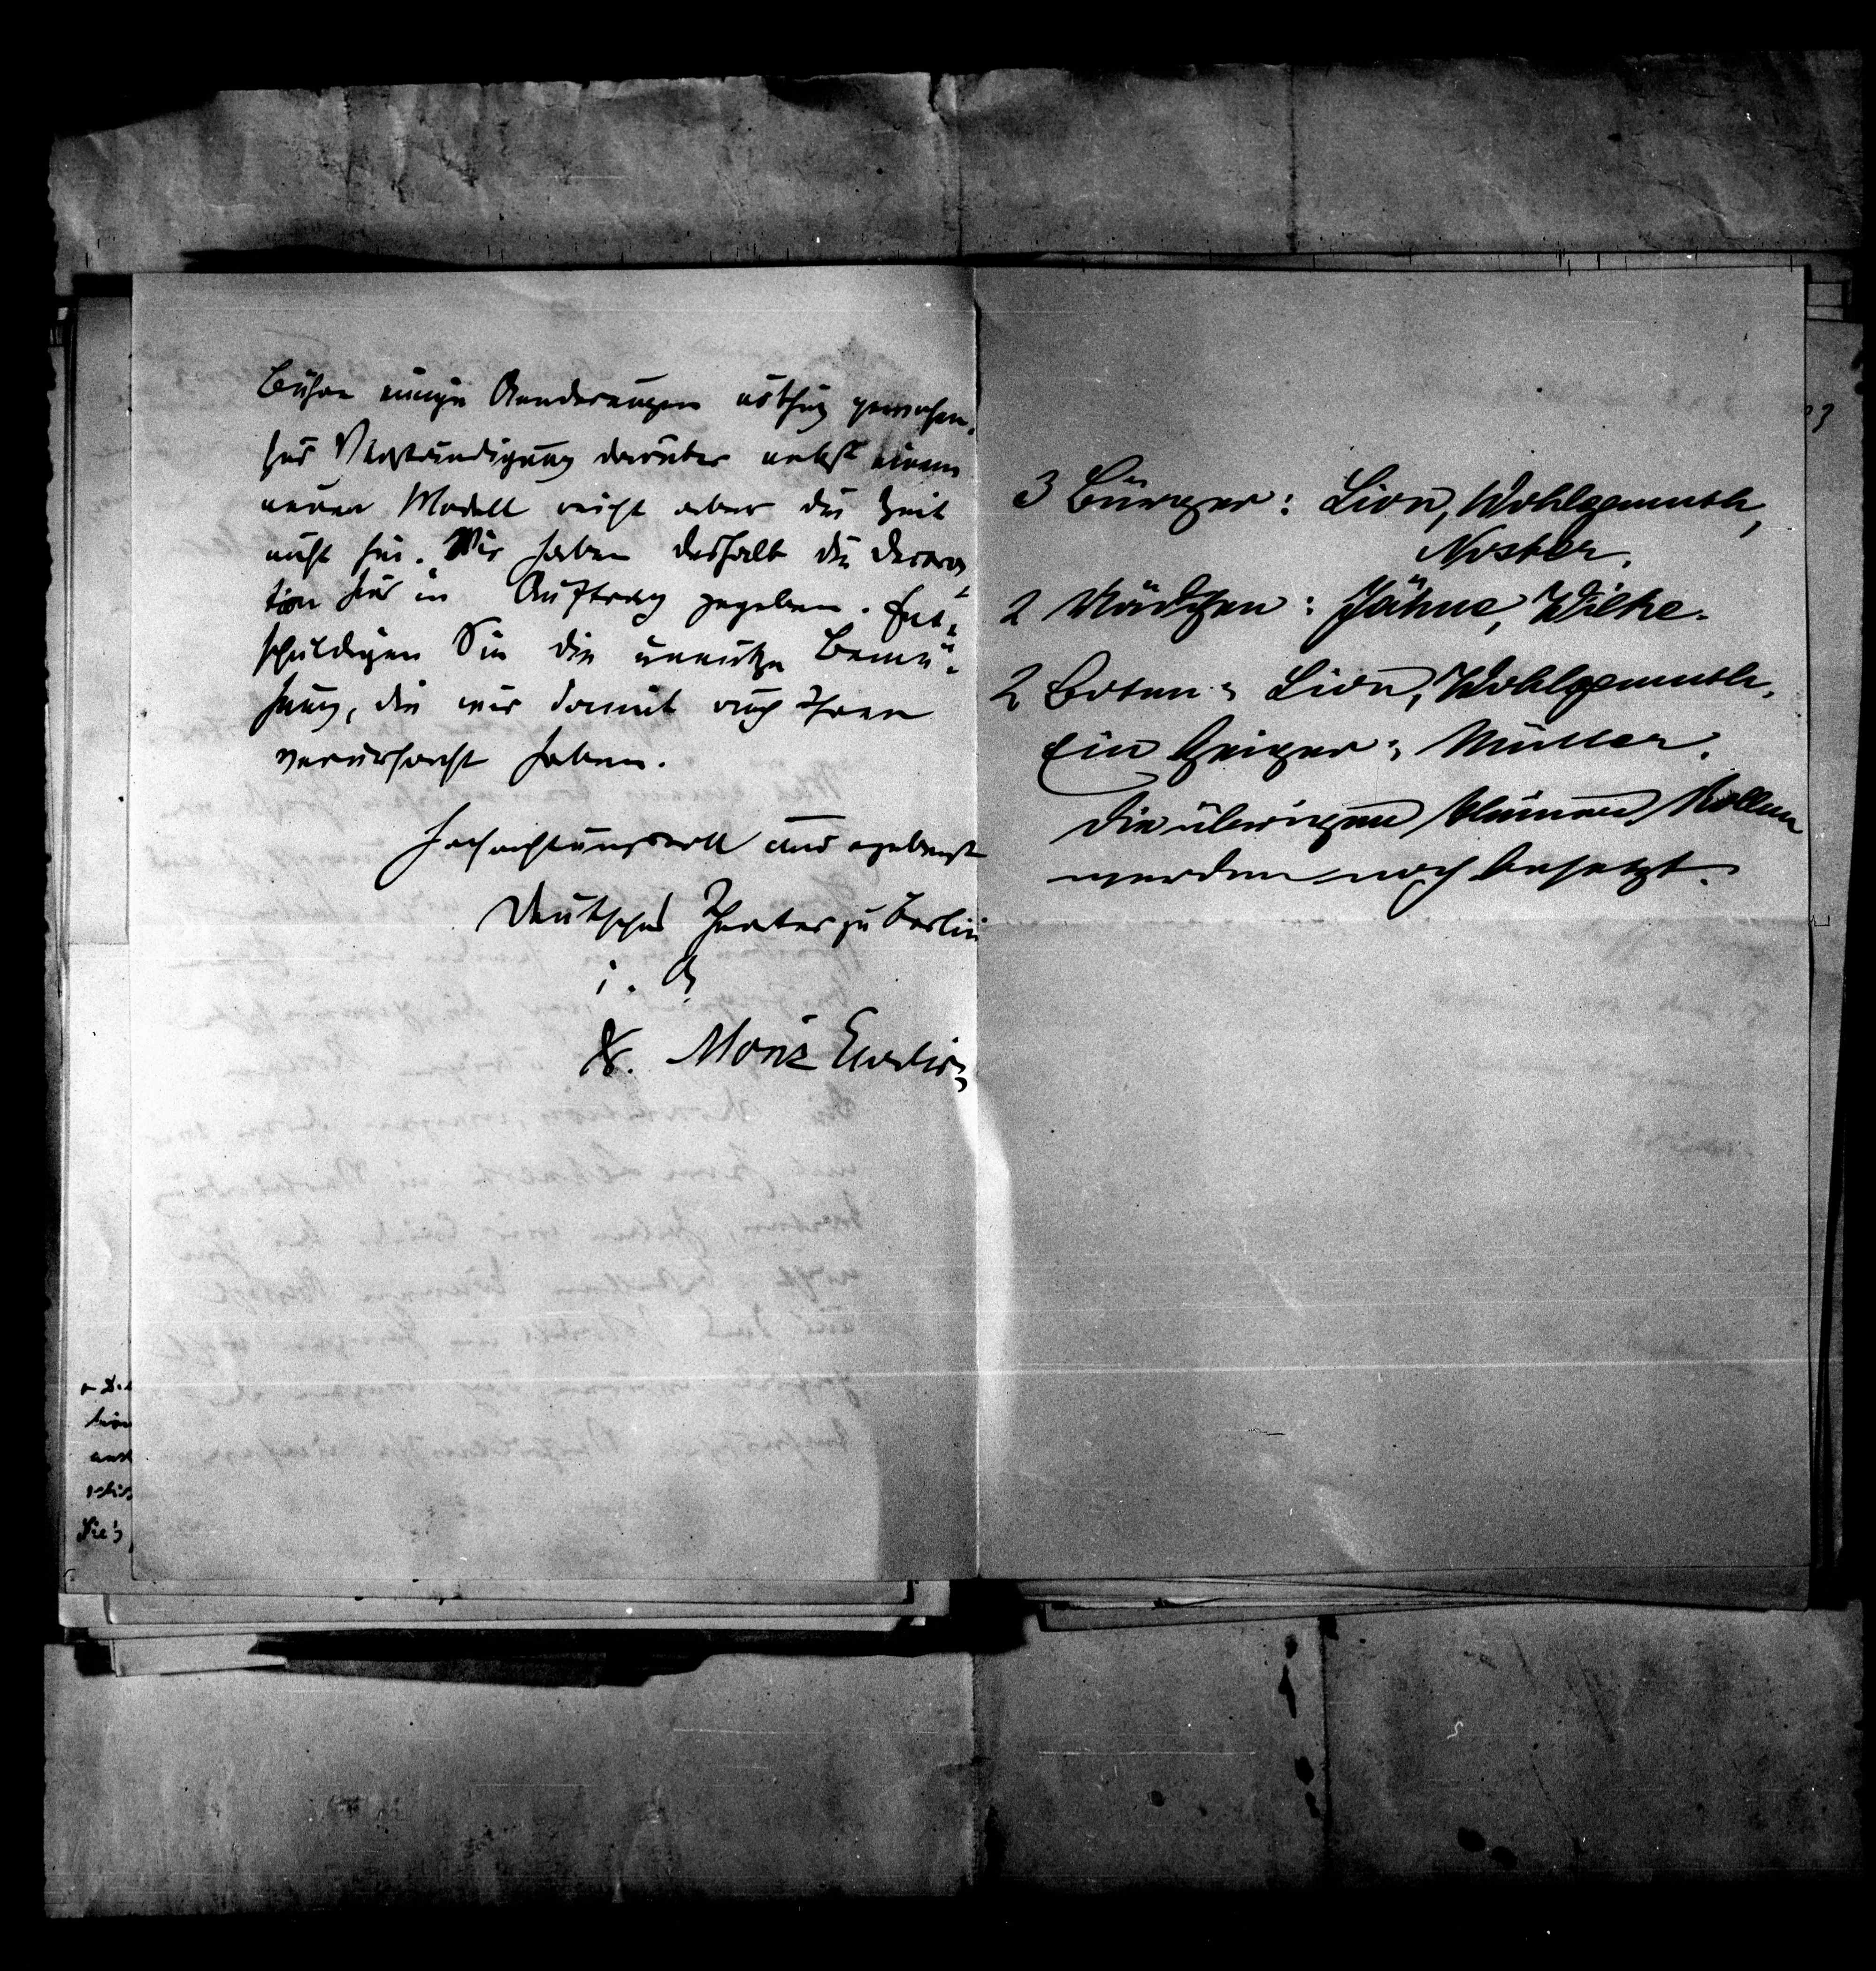 Bühne einige Aenderungen nöthig gewesen,
zur Verständigung darüber nebst einem
neuen Modell reicht aber die Zeit
nicht hin. Wir haben deshalb die Decora-
tion hier in Auftrag gegeben. Ent-
schuldigen Sie die unnütze Bemü-
hung, die wir damit auch Ihnen
verursacht haben.
Hochachtungsvoll und ergebenst
Deutsches Theater zu Berlin
i. A.
Dr. Moriz Ehrlich
3 Bürger: Lion, Wohlgemuth,
Noster.
2 Mädchen: Jähne, Wilke.
2 Boten: Lion, Wohlgemuth.
Ein Geiger: Müller.
Die übrigen kleinen Rollen
werden noch besetzt.